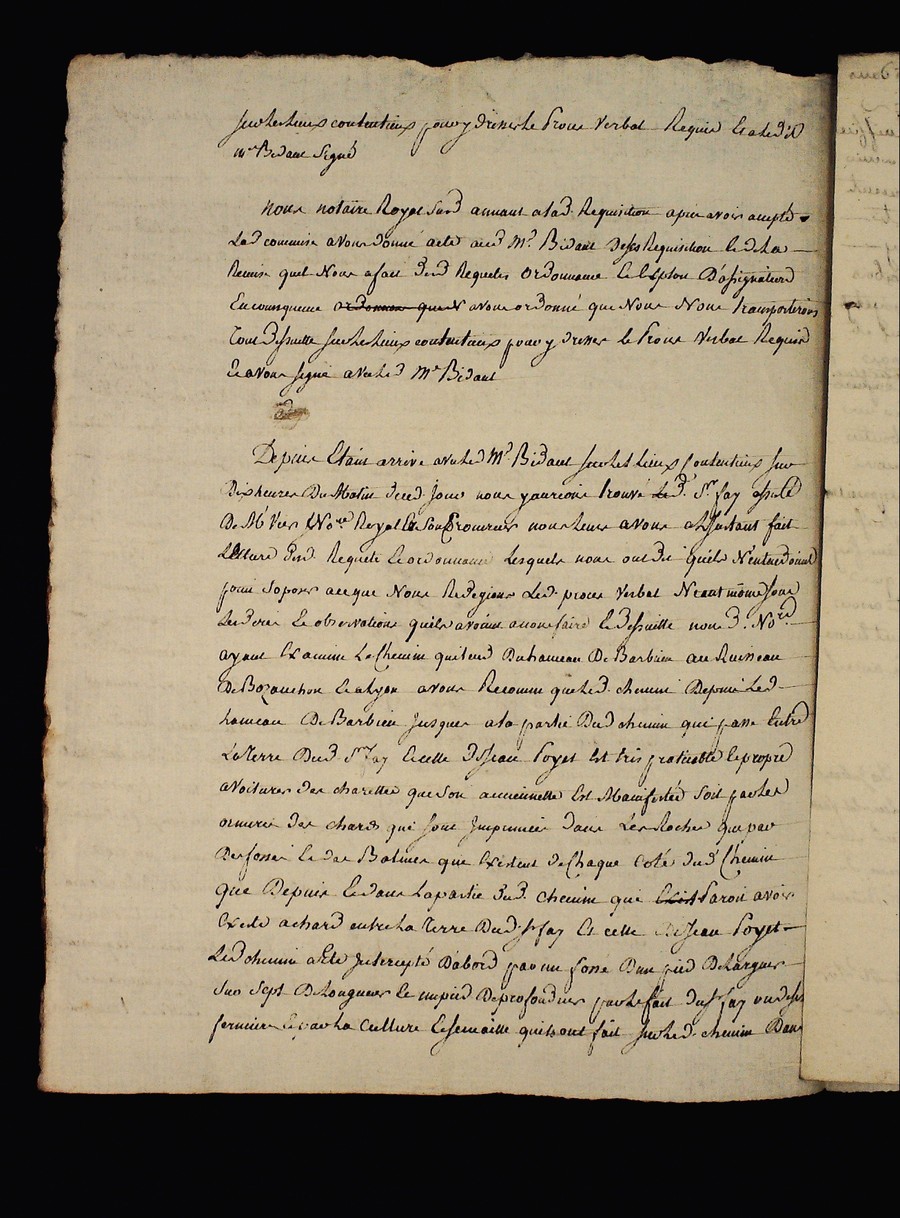 sur les lieux contentieux pour y dresser le Proces Verbal Requis Et a led
mr Bidaut Signé
Nous notaire Royal susd amant a lad Requisition apres avoir accepté
Lad commise avons donné acte aud Mr Bidaut de ses Requisition Et de La
Remise quil Nous a fait desd Requetes Ordonnance Et Exploit D'assignations
En consequence ordonnons que N avons ordonné que Nous Nous transporterions
Tout De suitte sur les Lieux contentieux pour y dresser le Proces Verbal Requis
Et avons signé avec led Mr Bidaut
Depuis Etant arrivé avec led Mr Bidaut sur les Lieux Contentieux sur
Dix heures Du Matin de ced. Jour nous y aurions trouvé Le d. Sr fay assisté
De Me Vier Nore Royal Et son Procureur nous leurs avons a l'Instant fait
Lecture desd Requete Et ordonnance Lesquels nous ont dit quils N'entendoient
point s'oposer a ce que Nous Redigions Led. proces Verbal Neant moins sous
Les dires Et observations quils avoient a nous faire Et de suitte nousd. Nore
ayant Examiné Le Chemin qui tend Du hameau De Barbieu au Ruisseau
De Bozanchon Et a Lyon avons Reconnu que led. chemin Depuis Led
hameau De Barbieu Jusques a la partie Dud chemin qui passe Entre
La terre Dud. Sr fay Et celle de Jean Poyet Est tres pratiquable Et propre
a Voitures Des charettes que son ancienneté Est Manifestée soit par les
ornieres Des chards qui sont Imprimées dans Les Roches que par
Des fossés Et des Balmes qui Existent de Chaque Coté dud Chemin
que Depuis Et dans La partie dud. chemin qui Exist Paroit avoir
Existé a chard entre La Terre Dud. Sr fay Et celle de Jean Poyet
Led chemin a Eté Intercepté D'abord par un fossé D'un pied De Largeur
sur sept De Longueur Et un pied De profondeur par le fait du Sr fay ou de ses
fermiers Et par La Culture Et semaille quils ont fait sur led. chemin Dans